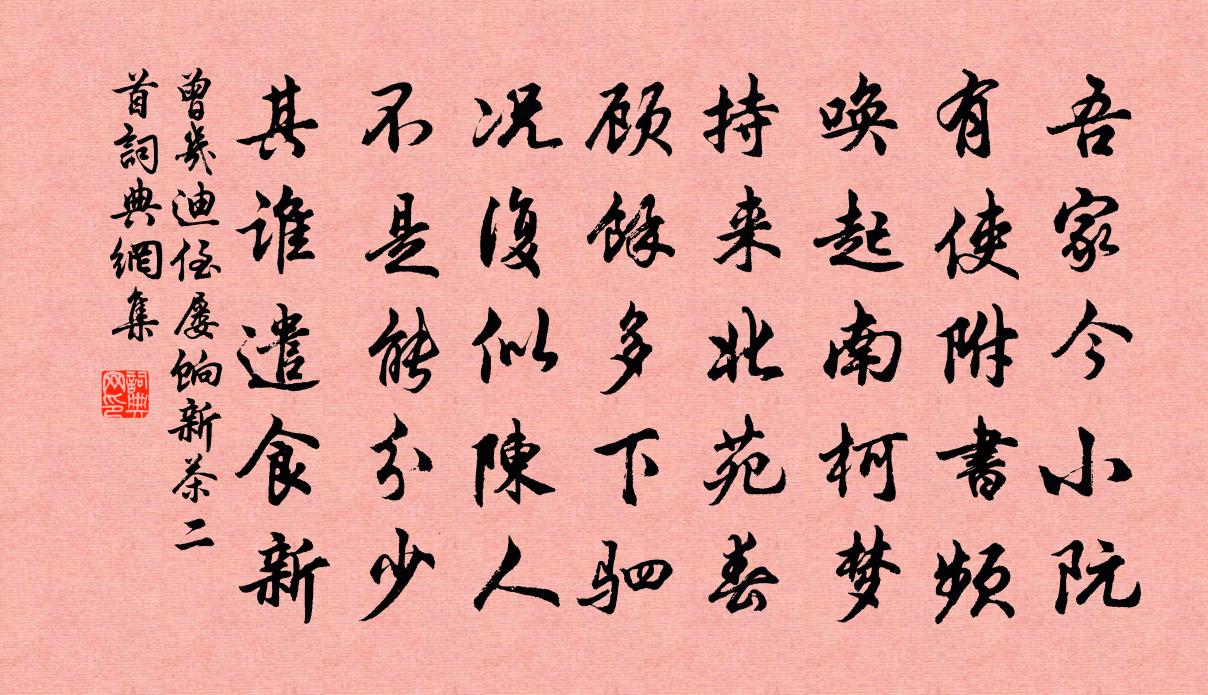 吾家今小阮
有使附書頻
唤起南柯梦
持来北苑春
顾餘多下驷
况復似陳人
不是能分少
其谁遣食新
曾幾迪侄屡餉新茶二
首詞典網集
詞典网印